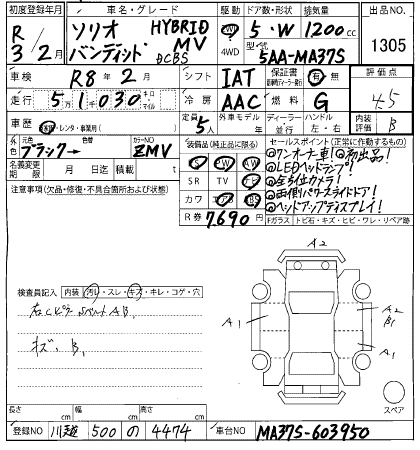 初度登録年月 車名・グレード 駆動 ドア数・形状 排気量 出品No.
R 3/2月 ソリオ HYBRID 2WD 5・W 1200cc 1305
バンディット MV 4WD 型・式
DCBS 5AA-MA37S
車検 R8年2月 シフト IAT 保証書 有・無 評価点
走行 5万1030 キロ マイル 冷房 AAC 燃料 G 4.5
車歴 自家用・レンタ・事業用( ) 定員 5人 外車モデル 年 ディーラー・並行 ハンドル 左・右 内装評価 B
外色 元色 ブラック→ 色替 カラーNO ZMV
装備品(純正品に限る) セールスポイント(正常に作動するもの)
名義変更期限 月 日迄 積載 t
SR TV ナビ
カワ エアB ABS
R券 7,690円
◎ワンオーナー車!◎初出品!
◎LEDヘッドランプ!
◎全方位カメラ!
◎両側パワースライドドア!
◎ヘッドアップディスプレイ!
Fガラス トビ石・キズ・ヒビ・ワレ・リペア跡
注意事項(欠品・修復・不具合箇所および状態)
検査員記入 内装 汚レ・スレ・キズ・キレ・コゲ・穴
A2
A1 A2 B1
A1 A1
キズ、B、
スペア
長さ cm 幅 cm 高さ cm
登録NO 川越 500 の 4474 車台NO MA37S-603950